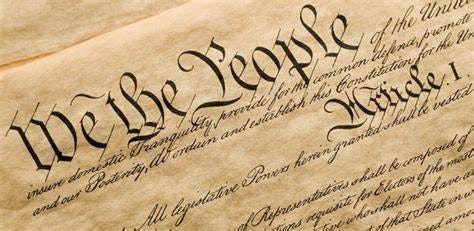 We the People of the Unite
insure domestic Tranquility, provide for the common defence, promote
and our Posterity, do ordain and establish this Constitution for the Un
Article. I.
All legislative Powers herein granted shall be vested
of Representatives shall be composed of
tions requisite for Electors of the most
who shall not have a
of that State in